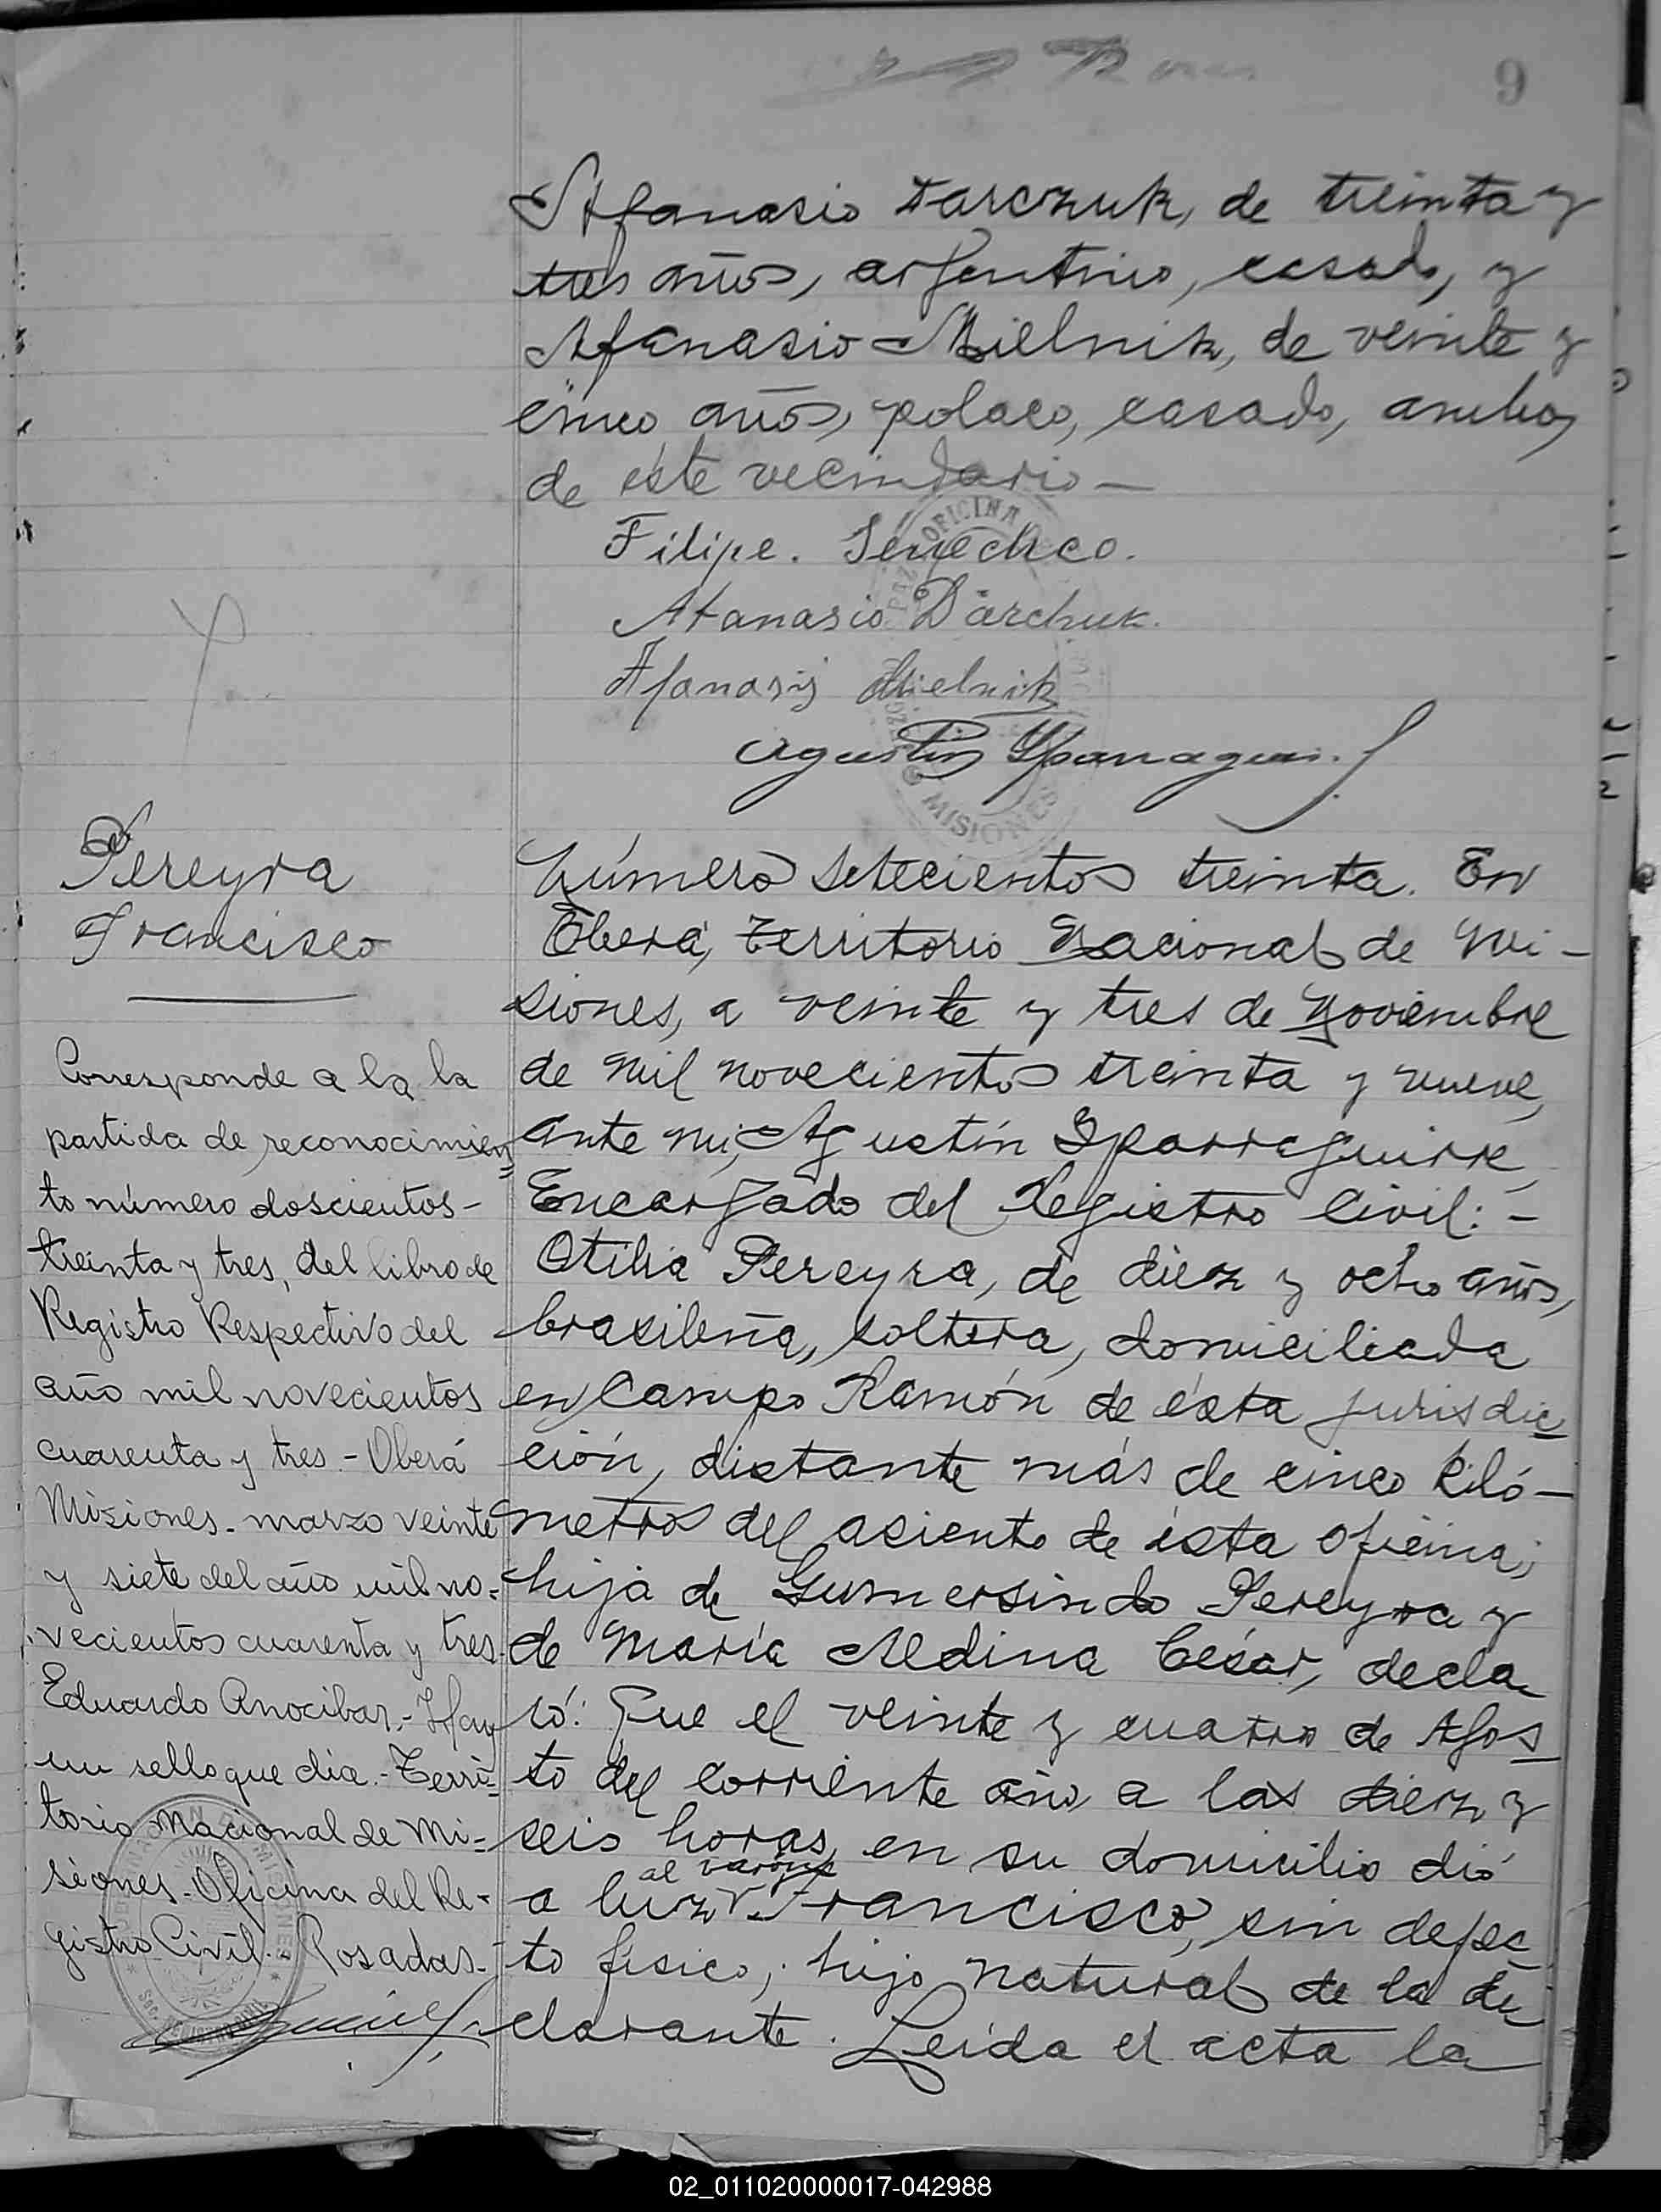 9
Afanasio Tarczuk, de treinta y
tres años, argentino, casado, y
Afanasio Mielnik, de veinte y
cinco años, polaco, casado, ambos
de éste vecindario —
Filipe.
Atanasio Darchuk.
Afanasij Mielnik
Agustin Yparraguirre
OFICINA
PAZ
MISIONES
Pereyra
Francisco
Corresponde a la la
partida de reconocimien
to número doscientos-
treinta y tres, del libro de
Registro Respectivo del
año mil novecientos
cuarenta y tres - Oberá
Misiones - marzo veinte
y siete del año mil no=
vecientos cuarenta y tres-
Eduardo Anocibar.- Hay
un sello que dia.- Terri=
torio Nacional de Mi=
siones - Oficina del Re-
gistro Civil. Posadas.-
Número setecientos treinta. En
Oberá, Territorio Nacional de Mi-
siones, a veinte y tres de Noviembre
de mil novecientos treinta y nueve,
ante mi, Agustín Yparraguirre,
Encargado del Registro Civil: -
Otilia Pereyra, de diez y ocho años,
brasileña, soltera, domiciliada
en Campo Ramón de ésta jurisdic
ción, distante más de cinco kiló-
metros del asiento de ésta oficina;
hija de Gumersindo Pereyra y
de María Medina César, decla
ró: Que el veinte y cuatro de Agos
to del corriente año, a las diez y
seis horas, en su domicilio dió
al varón
a luz Francisco, sin defec
to físico; hijo natural de la de
clarante. Leida el acta la
02_011020000017-042988